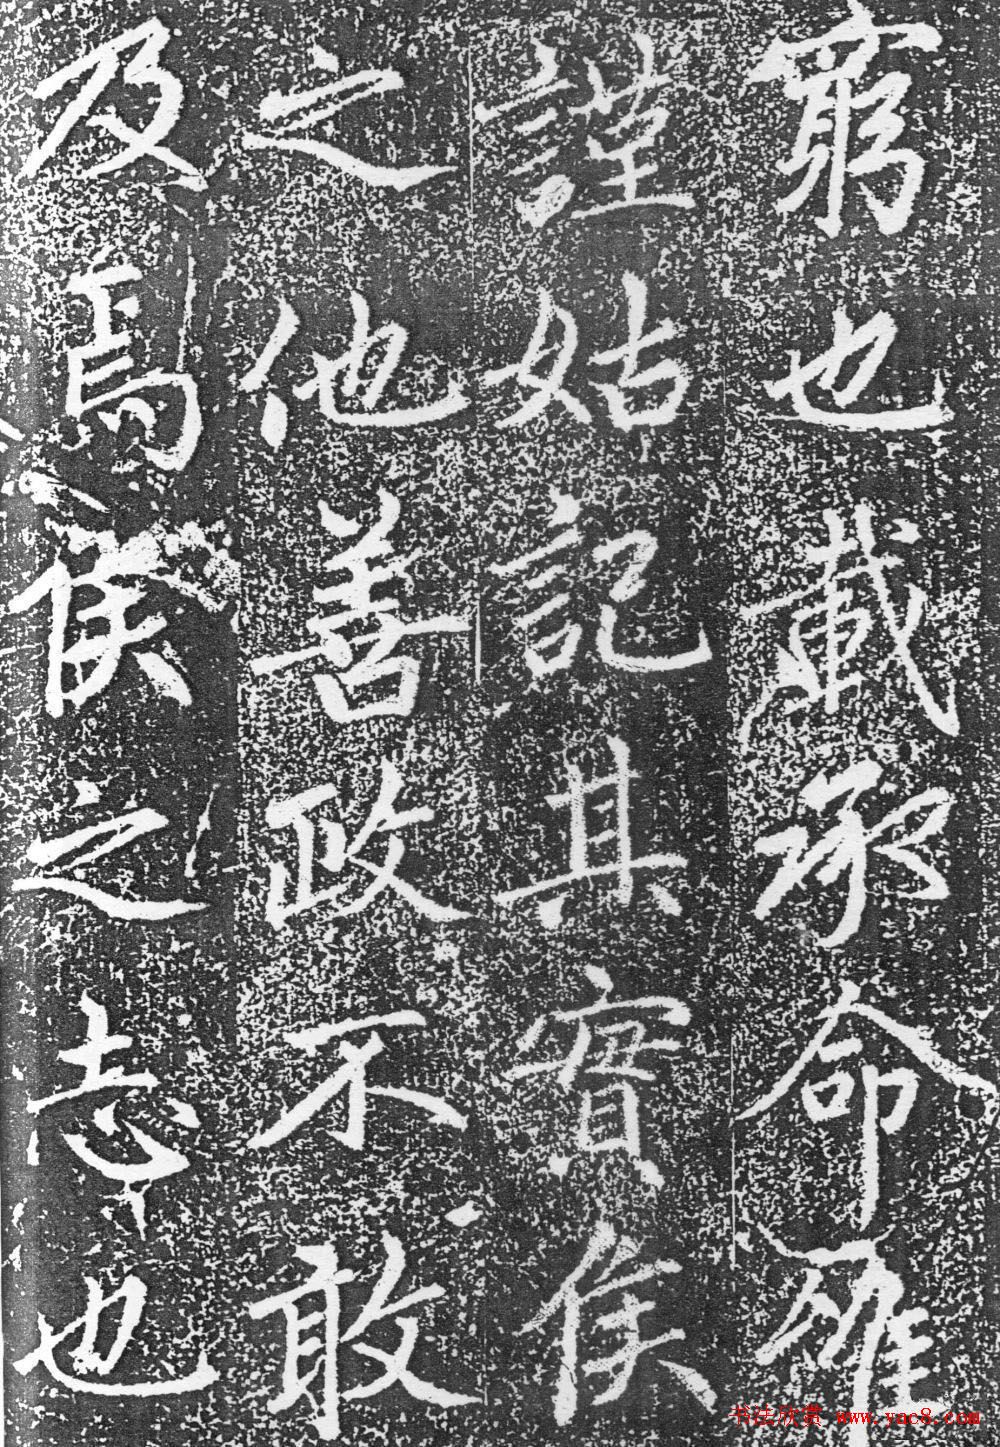 窮也載承命確
謹姑記其實侯
之他善政不敢
及焉侯之志也
书法欣赏 www.yac8.com